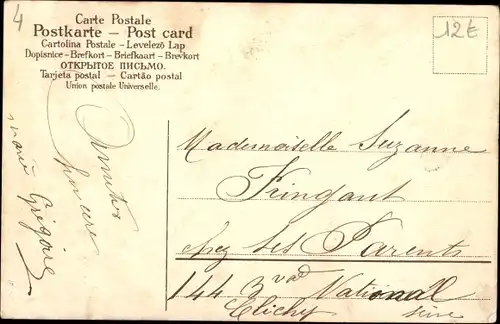 4
Carte Postale
Postkarte — Post card
Cartolina Postale — Levelező Lap
Dopisnice — Brefkort — Briefkaart — Brevkort
ОТКРЫТОЕ ПИСЬМО.
Tarjeta postal — Cartão postal
Union postale Universelle.
12€
Amitiés
sincères
Marie Grégoire
Mademoiselle Suzanne
Fringant
chez ses Parents
144 Bvd National
Clichy Seine